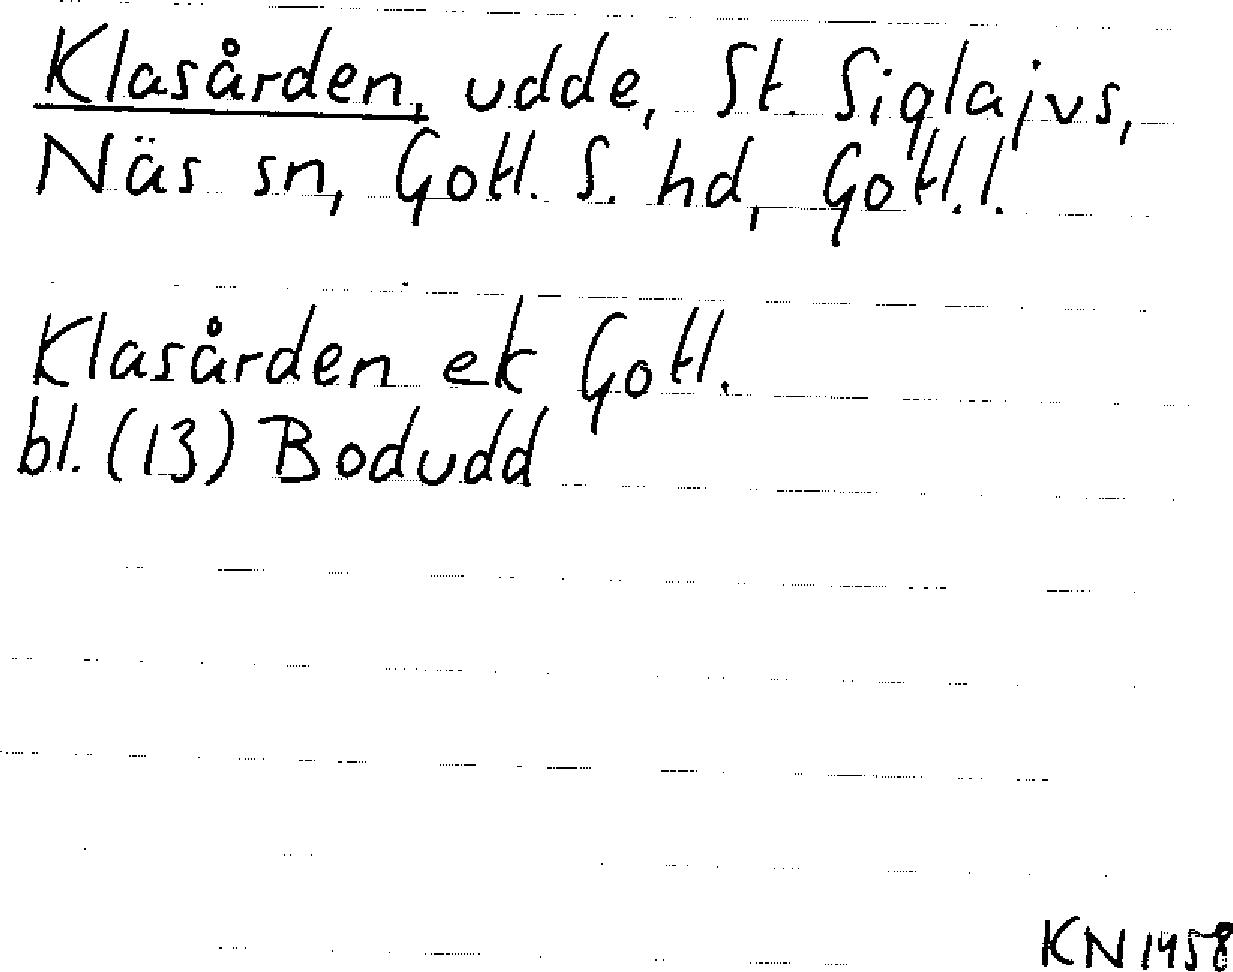 Klasården, udde, St. Siglajvs,
Näs sn, Gotl. S. hd, Gotl. l.
Klasården ek Gotl.
bl. (13) Bodudd
KN 1958